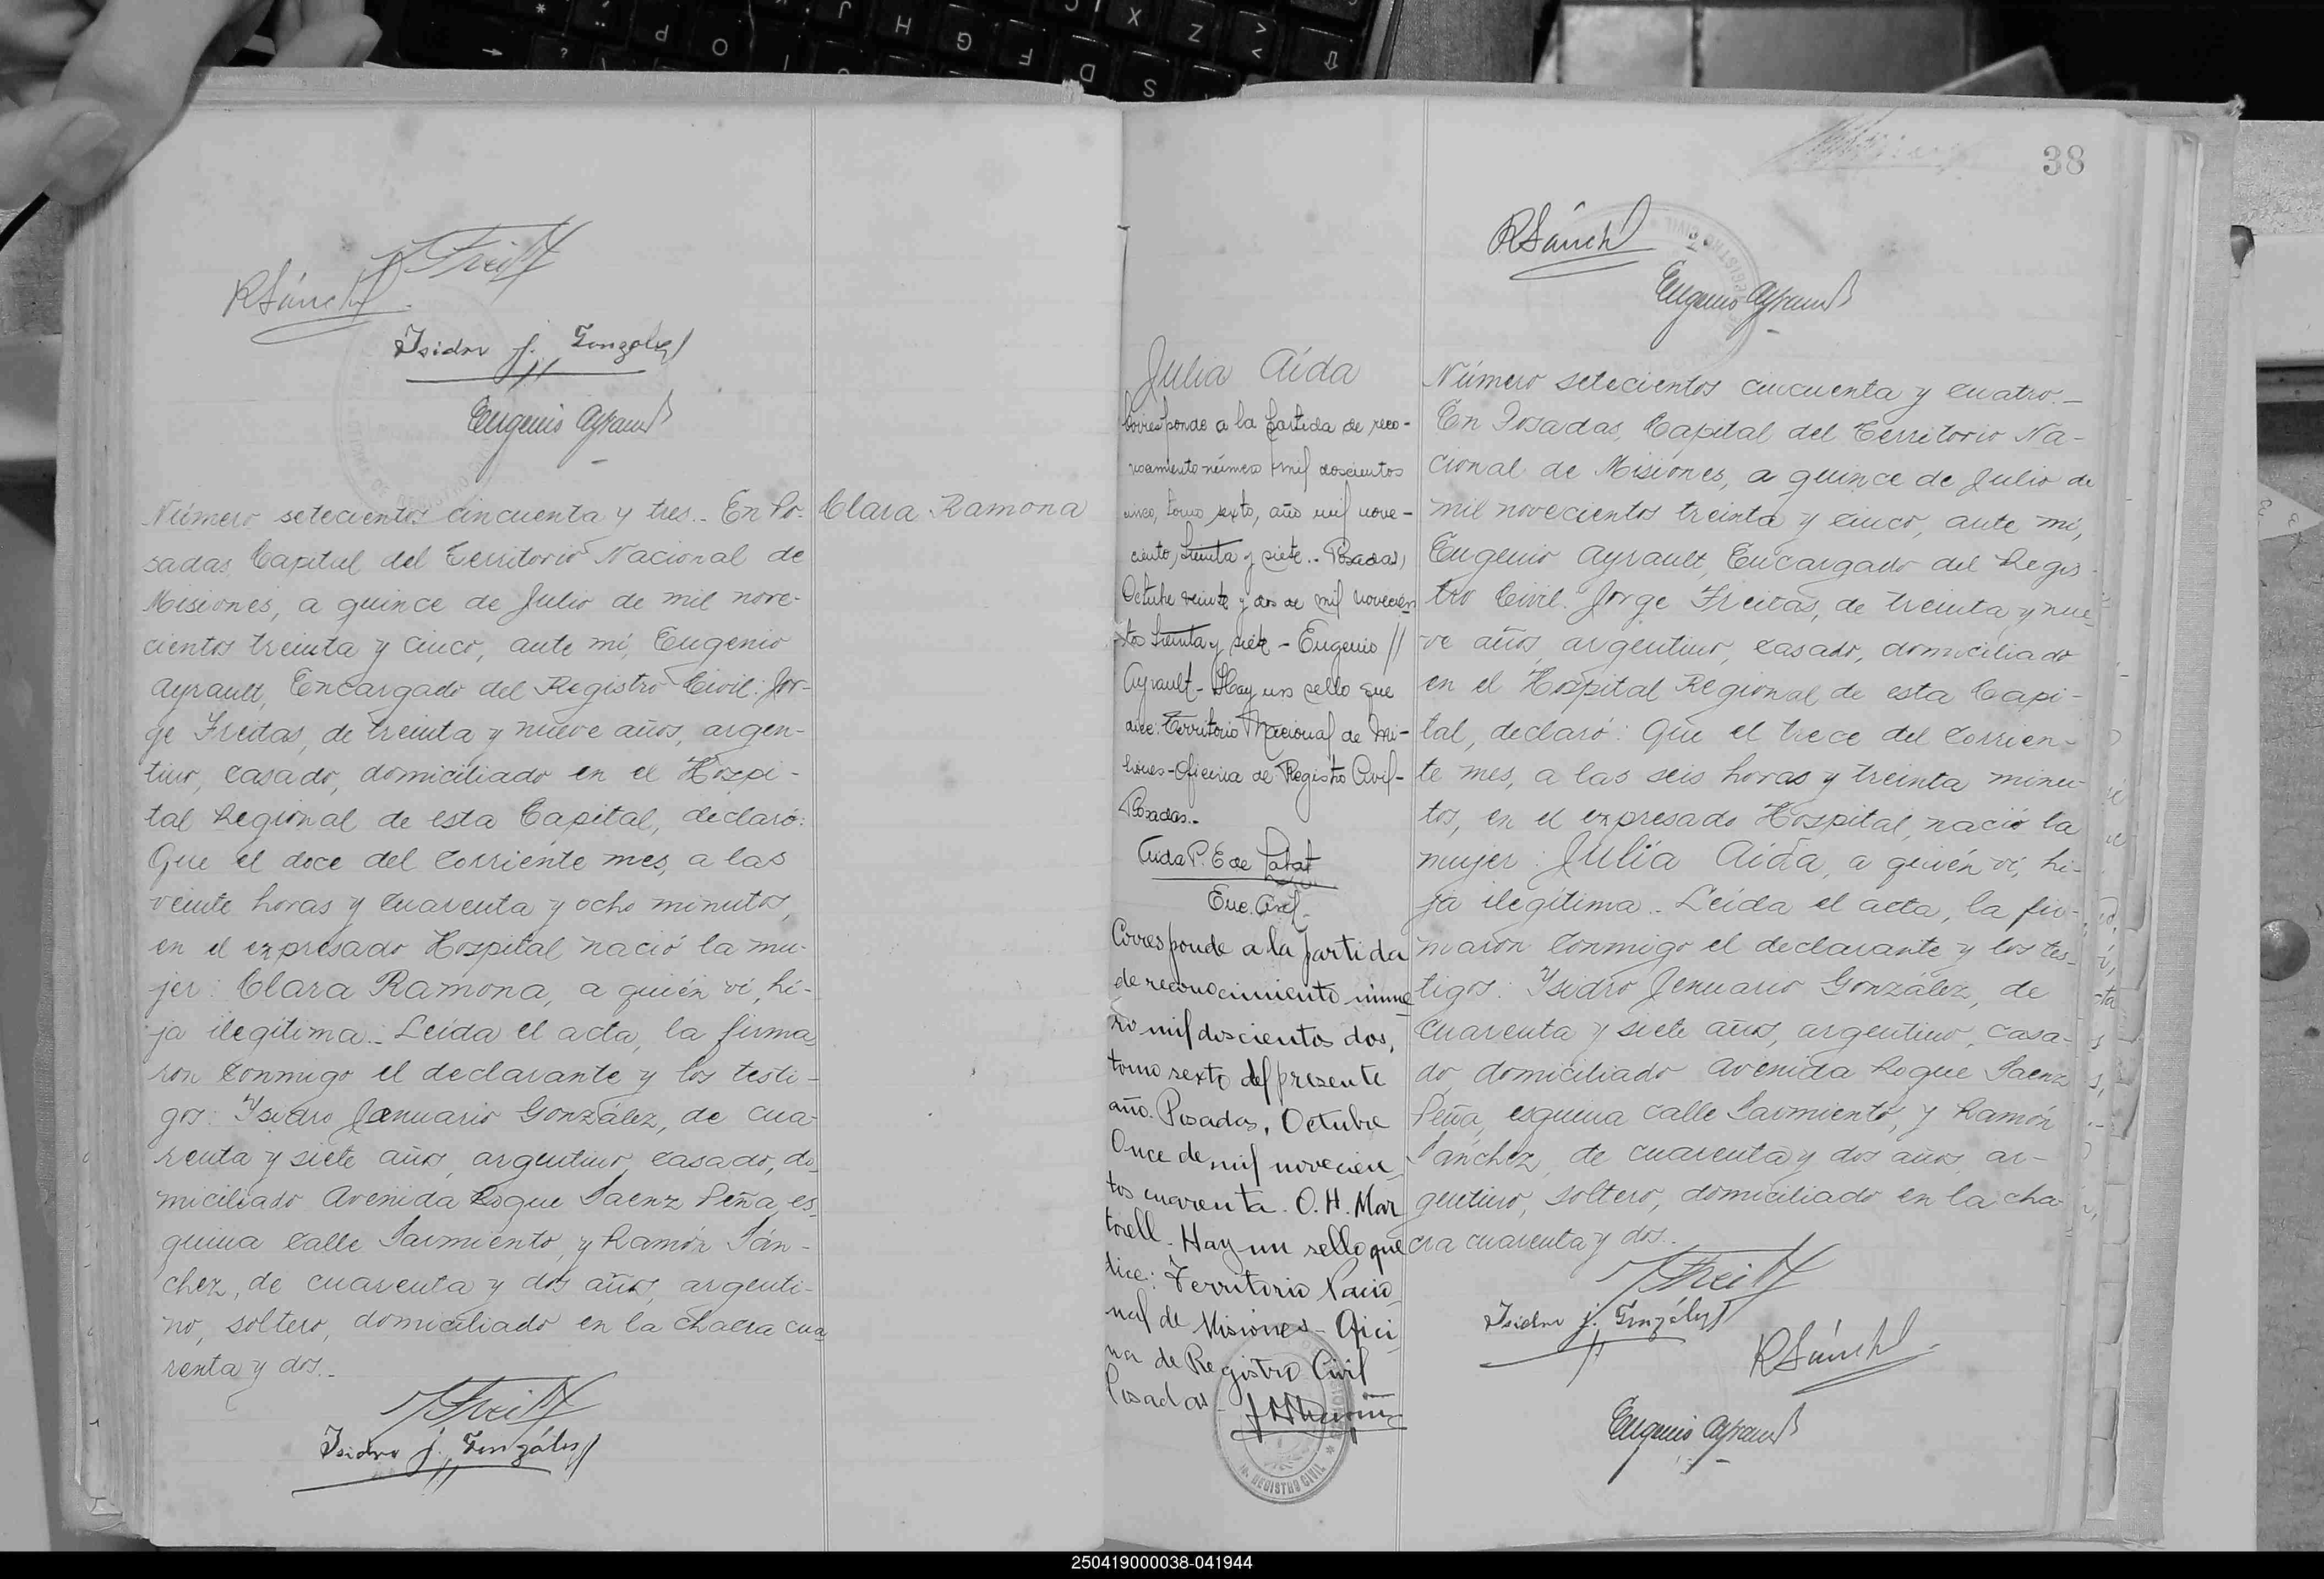 R Sánch
Isidro J. González
Eugenio Ayrault
Número setecientos cincuenta y tres.- En Po-
sadas, Capital del Territorio Nacional de
Misiones, a quince de Julio de mil nove-
cientos treinta y cinco, ante mi, Eugenio
Ayrault, Encargado del Registro Civil: Jor-
ge Freitas, de treinta y nueve años, argen-
tino, casado, domiciliado en el Hospi-
tal Regional de esta Capital, declaró:
Que el doce del corriente mes, a las
veinte horas y cuarenta y ocho minutos,
en el expresado Hospital nació la mu-
jer: Clara Ramona, a quién ví, hi-
ja ilegítima.- Leída el acta, la firma-
ron conmigo el declarante y los testi-
gos: Ysidro Januario González, de cua-
renta y siete años, argentino, casado, do-
miciliado Avenida Roque Saenz Peña, es-
quina calle Sarmiento, y Ramón Sán-
chez, de cuarenta y dos años, argenti-
no, soltero, domiciliado en la chacra cua-
renta y dos.-
Isidro J. González
Clara Ramona
Julia Aída
Corresponde a la partida de reco-
nocimiento número mil doscientos
cinco, tomo sexto, año mil nove-
ciento, treinta y siete.- Posadas,
Octubre veinte y dos de mil novecien-
tos treinta y siete - Eugenio //
Ayrault - Hay un sello que
dice: Territorio Nacional de Mi-
siones - Oficina de Registro Civil -
Posadas.-
Aida P. E de
Enc. Civil.-
Corresponde a la partida
de reconocimiento núme
ro mil doscientos dos,
tomo sexto del presente
año. Posadas, Octubre
Once de mil novecien
tos cuarenta. O. H. Mar
torell. Hay un sello que
dice: Territorio Nacio
nal de Misiones - Ofici
na de Registro Civil
Posadas -
REGISTRO CIVIL
38
R Sánch
Eugenio Ayrault
Número setecientos cincuenta y cuatro.-
En Posadas, Capital del Territorio Na-
cional de Misiones, a quince de Julio de
mil novecientos treinta y cinco, ante mi,
Eugenio Ayrault, Encargado del Regis-
tro Civil. Jorge Freitas, de treinta y nue-
ve años, argentino, casado, domiciliado
en el Hospital Regional de esta Capi-
tal, declaró: Que el trece del corrien-
te mes, a las seis horas y treinta minu-
tos, en el expresado Hospital, nació la
mujer: Julia Aída, a quién ví, hi-
ja ilegítima.- Leída el acta, la fir-
maron conmigo el declarante y los tes-
tigos: Ysidro Jenuario González, de
cuarenta y siete años, argentino, casa-
do, domiciliado Avenida Roque Saenz
Peña, esquina calle Sarmiento, y Ramón
Sánchez, de cuarenta y dos años, ar-
gentino, soltero, domiciliado en la cha-
cra cuarenta y dos.-
Isidro J. González
R Sánch
Eugenio Ayrault
250419000038-041944